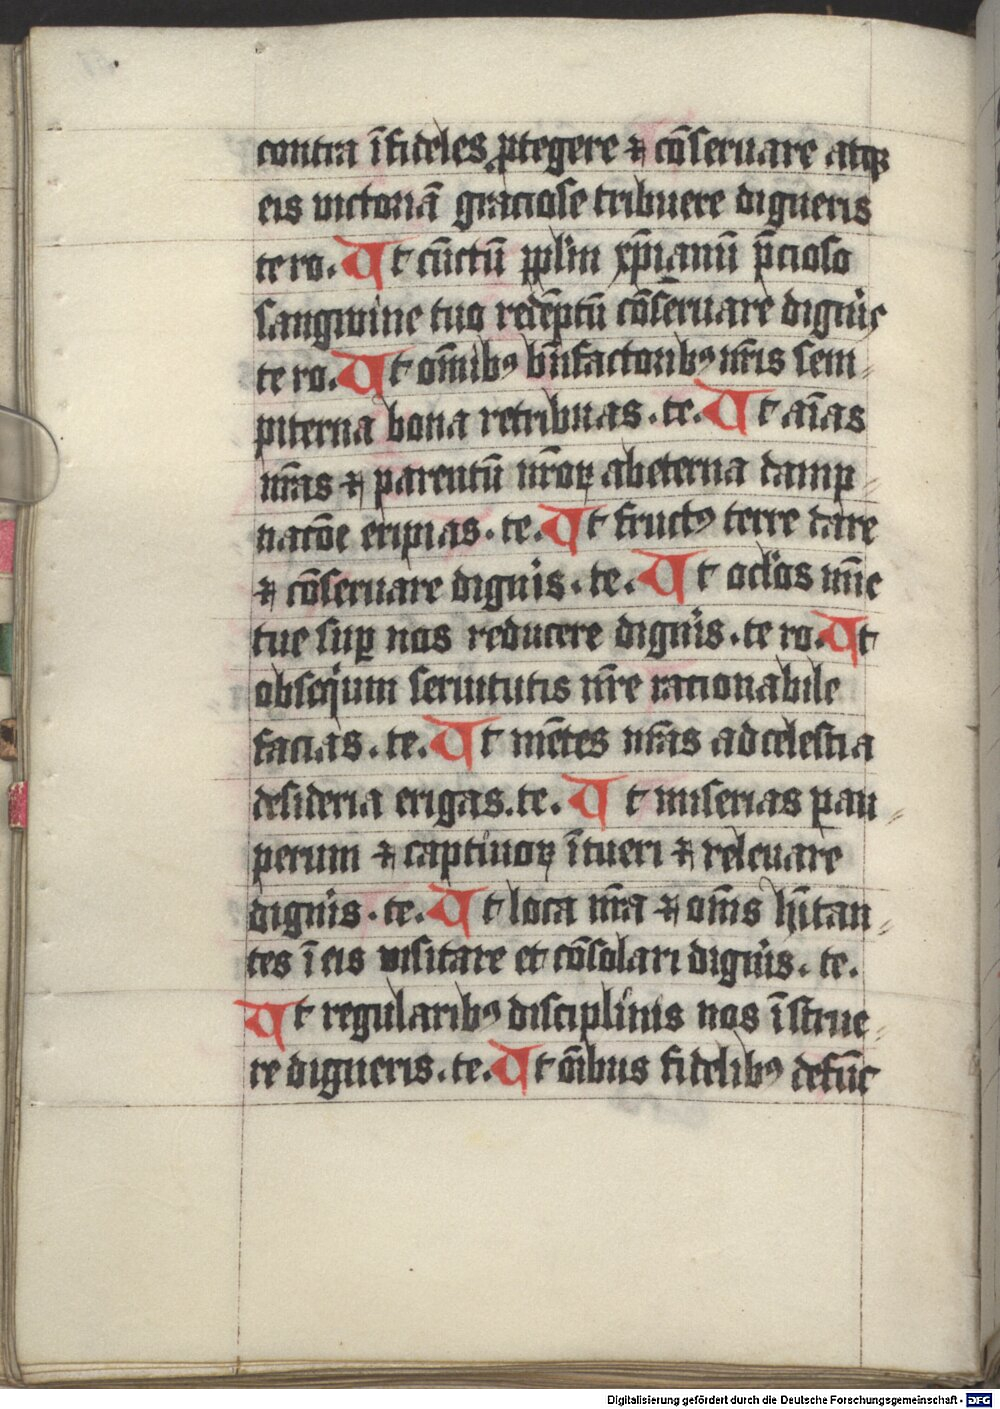 contra īfideles ꝓtegere ⁊ cōseruare atqꝫ
eis victoriā graciose tribuere digneris
te ro. Ut cūctū pplm xp̄ianū p̄cioso
sangwine tuo redēptū cōseruare digneris
te ro. Ut om̄ibꝰ bn̄factoribꝰ nr̄is sem
piterna bona retribuas. te. Ut aīas
nr̄as ⁊ parentū nr̄oꝝ ab eterna damp
natōe eripias. te. Ut fructꝰ terre dare
⁊ cōseruare dignis. te. Ut oclōs mīe
tue suꝑ nos reducere dignis. te ro. Ut
obseqium seruitutis nr̄e racionabile
facias. te. Ut mētes nr̄as ad celestia
desideria erigas. te. Ut miserias pau
perum ⁊ captiuoꝝ ītueri ⁊ releuare
dignis. te. Ut loca nr̄a ⁊ om̄s hītan
tes ī eis visitare et cōsolari dignis. te.
Ut regularibꝰ disciplinis nos īstrue
re digneris. te. Ut oībus fidelibꝰ defūc
Digitalisierung gefördert durch die Deutsche Forschungsgemeinschaft - DFG